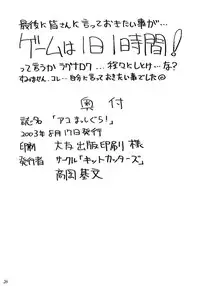 最後に皆さんに言っておきたい事が…
ゲームは1日1時間!
って言うか ラグナロク… 程々にしとけ…な?
すいません、コレ…自分に言っておきたい事でした
奥付
誌名 「アコまっしぐら!」
2003年8月17日発行
印刷 大友出版印刷 様
発行者 サークル「キットカッターズ」
高岡基文